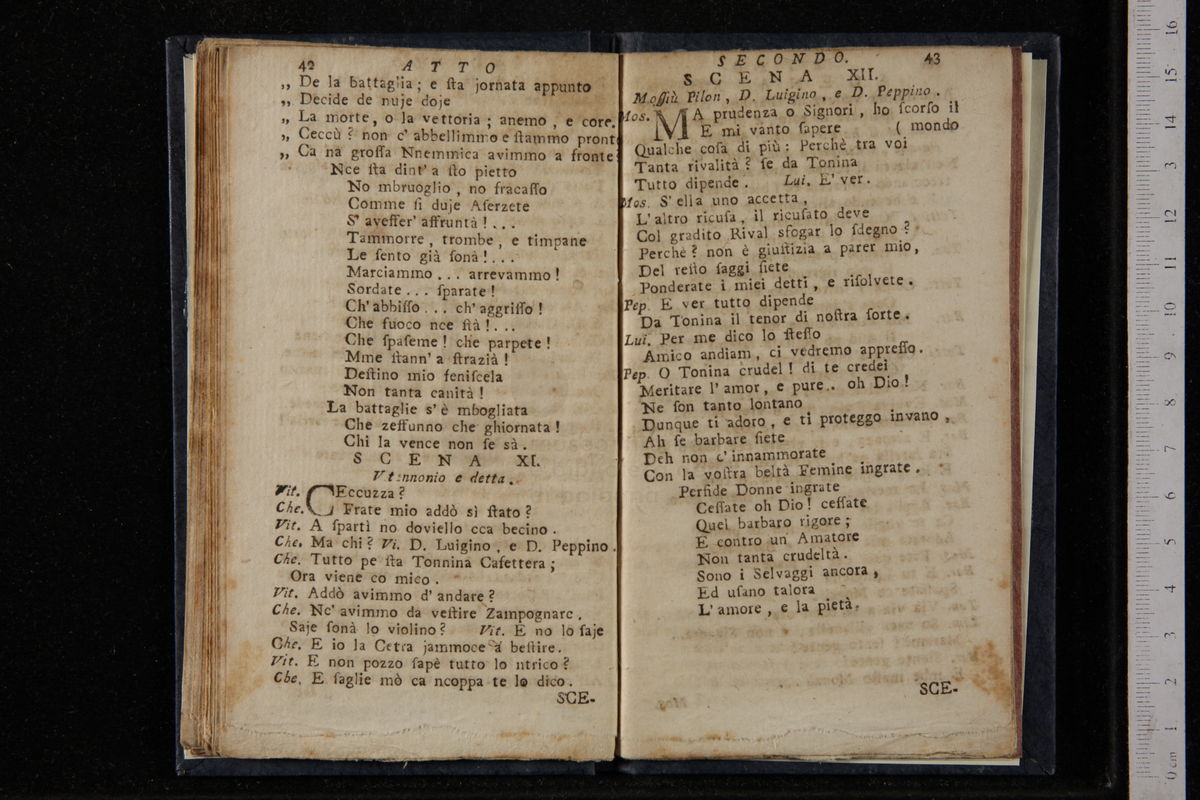 42 A T T O
„ De la battaglia; e ſta jornata appunto
„ Decide de nuje doje
„ La morte, o la vettoria; anemo, e core.
„ Ceccù? non c' abbellimmo e ſtammo pront
„ Ca na groſſa Nnemmica avimmo a fronte
Nce ſta dint' a ſto pietto
No mbruoglio, no fracaſſo
Comme ſi duje Aſerzete
S' aveſſer' affruntà!...
Tammorre, trombe, e timpane
Le ſento già ſonà!...
Marciammo... arrevammo!
Sordate... ſparate!
Ch' abbiſſo... ch' aggriſſo!
Che fuoco nce ſtà!...
Che ſpaſeme! che parpete!
Mme ſtann' a ſtrazià!
Deſtino mio feniſcela
Non tanta canità!
La battaglie s' è mbogliata
Che zeffunno che ghiornata!
Chi la vence non ſe sà.
S C E N A XI.
Vitennonio e detta.
Vit. CEccuzza?
Che. Frate mio addò sì ſtato?
Vit. A ſpartì no doviello cca becino.
Che. Ma chi? Vi. D. Luigino, e D. Peppino.
Che. Tutto pe ſta Tonnina Cafettera;
Ora viene co mico.
Vit. Addò avimmo d' andare?
Che. Nc' avimmo da veſtire Zampognare.
Saje ſonà lo violino? Vit. E no lo ſaje
Che. E io la Cetra jammoce a beſtire.
Vit. E non pozzo ſapè tutto lo ntrico?
Che. E ſaglie mò ca ncoppa te lo dico.
SCE-
S E C O N D O. 43
S C E N A XII.
Moſſiù Pilon, D. Luigino, e D. Peppino.
Mos. MA prudenza o Signori, ho ſcorſo il
E mi vanto ſapere ( mondo
Qualche coſa di più: Perchè tra voi
Tanta rivalità? ſe da Tonina
Tutto dipende. Lui. E' ver.
Mos. S' ella uno accetta,
L' altro ricuſa, il ricuſato deve
Col gradito Rival sfogar lo ſdegno?
Perchè? non è giuſtizia a parer mio,
Del reſto ſaggi ſiete
Ponderate i miei detti, e riſolvete.
Pep. E ver tutto dipende
Da Tonina il tenor di noſtra ſorte.
Lui. Per me dico lo ſteſſo
Amico andiam, ci vedremo appreſſo.
Pep. O Tonina crudel! di te credei
Meritare l' amor, e pure.. oh Dio!
Ne ſon tanto lontano
Dunque ti adoro, e ti proteggo invano,
Ah ſe barbare ſiete
Deh non c' innammorate
Con la voſtra beltà Femine ingrate.
Perfide Donne ingrate
Ceſſate oh Dio! ceſſate
Quel barbaro rigore;
E contro un Amatore
Non tanta crudeltà.
Sono i Selvaggi ancora,
Ed uſano talora
L' amore, e la pietà.
SCE-
0 cm 1 2 3 4 5 6 7 8 9 10 11 12 13 14 15 16